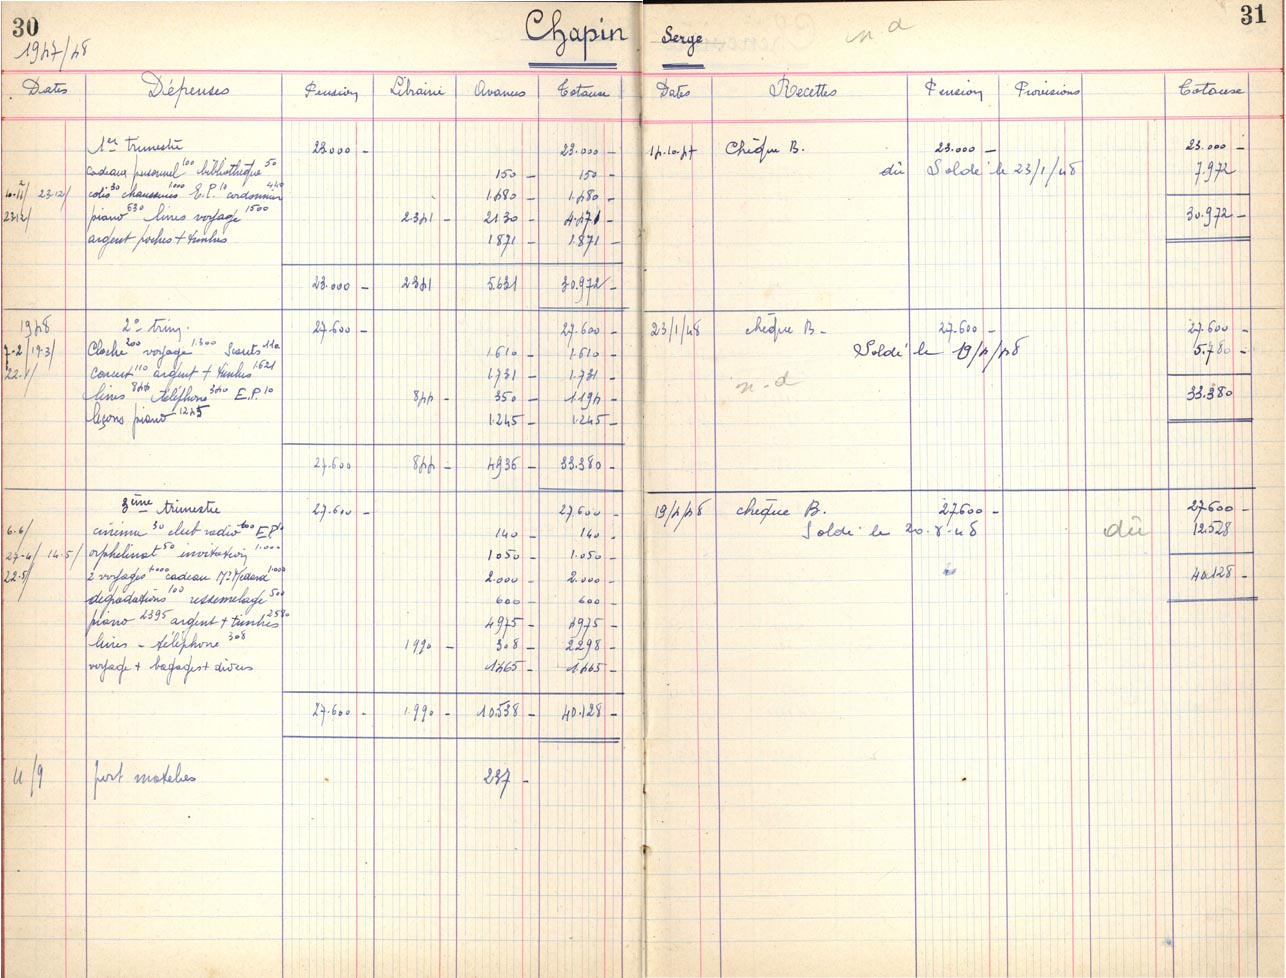 30
1947/48
Chapin
Dates Dépenses Pension Librairie Avances Totaux
1er trimestre 23.000 - 23.000 -
cadeau personnel 100 bibliothèque 50 150 - 150 -
23.12/ cotis 30 chaussures 1000 E.P. 10 cordonnier 440 1.480 - 1.480 -
23.12/ piano 630 livres voyage 1500 2341 - 2130 - 4.471 -
argent poches + timbres 1.871 - 1.871 -
23.000 - 2341 5.631 30.972 -
1948 2e trim. 27.600 - 27.600 -
7-2/19.3/ Cloche 200 voyage 1.300 Scouts 110 1.610 - 1.610 -
22-1/ Concert 110 argent + timbres 1.621 1.731 - 1.731 -
livres 844 téléphone 340 E.P. 10 844 - 350 - 1194 -
leçons piano 1245 1.245 - 1.245 -
27.600 844 - 4936 - 33.380 -
3ème trimestre 27.600 - 27.600 -
6-6/ cinéma 30 club radio 100 E.P. 10 140 - 140 -
27-4/ 14.5/ orphelinat 50 invitation 1.000 1050 - 1.050 -
22.5/ 2 voyages 1000 cadeau Mr Médard 1.000 2.000 - 2.000 -
dégradations 100 ressemelage 500 600 - 600 -
piano 2395 argent + timbres 2580 4975 - 4975 -
livres - téléphone 308 1990 - 308 - 2298 -
voyage + bagages + divers 1465 - 1.465 -
27.600 - 1.990 - 10538 - 40.128 -
11/9 port malles 237 -
31
Serge n d
Dates Recettes Pension Provisions Totaux
14.10.47 Chèque B. 23.000 - 23.000 -
dû Soldé le 23/1/48 7.972
30.972 -
23/1/48 chèque B - 27.600 - 27.600 -
Soldé le 19/4/48 5.780 -
n-d 33.380
19/4/48 chèque B. 27600 - 27.600 -
Soldé le 20-8-48 dû 12.528
40.128 -